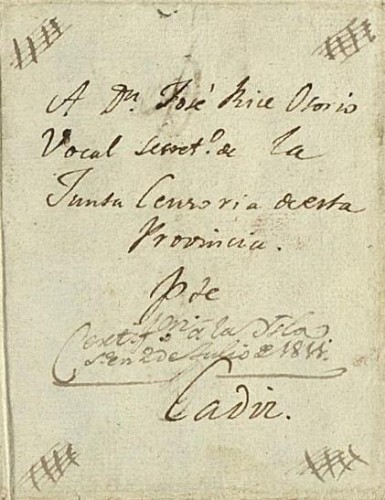 A Dn. José Rice Osorio
Vocal Secreto. de la
Junta Censoria de esta
Provincia.
Pte
a la Isla
en 2 de Julio de 1811.
Cadiz.